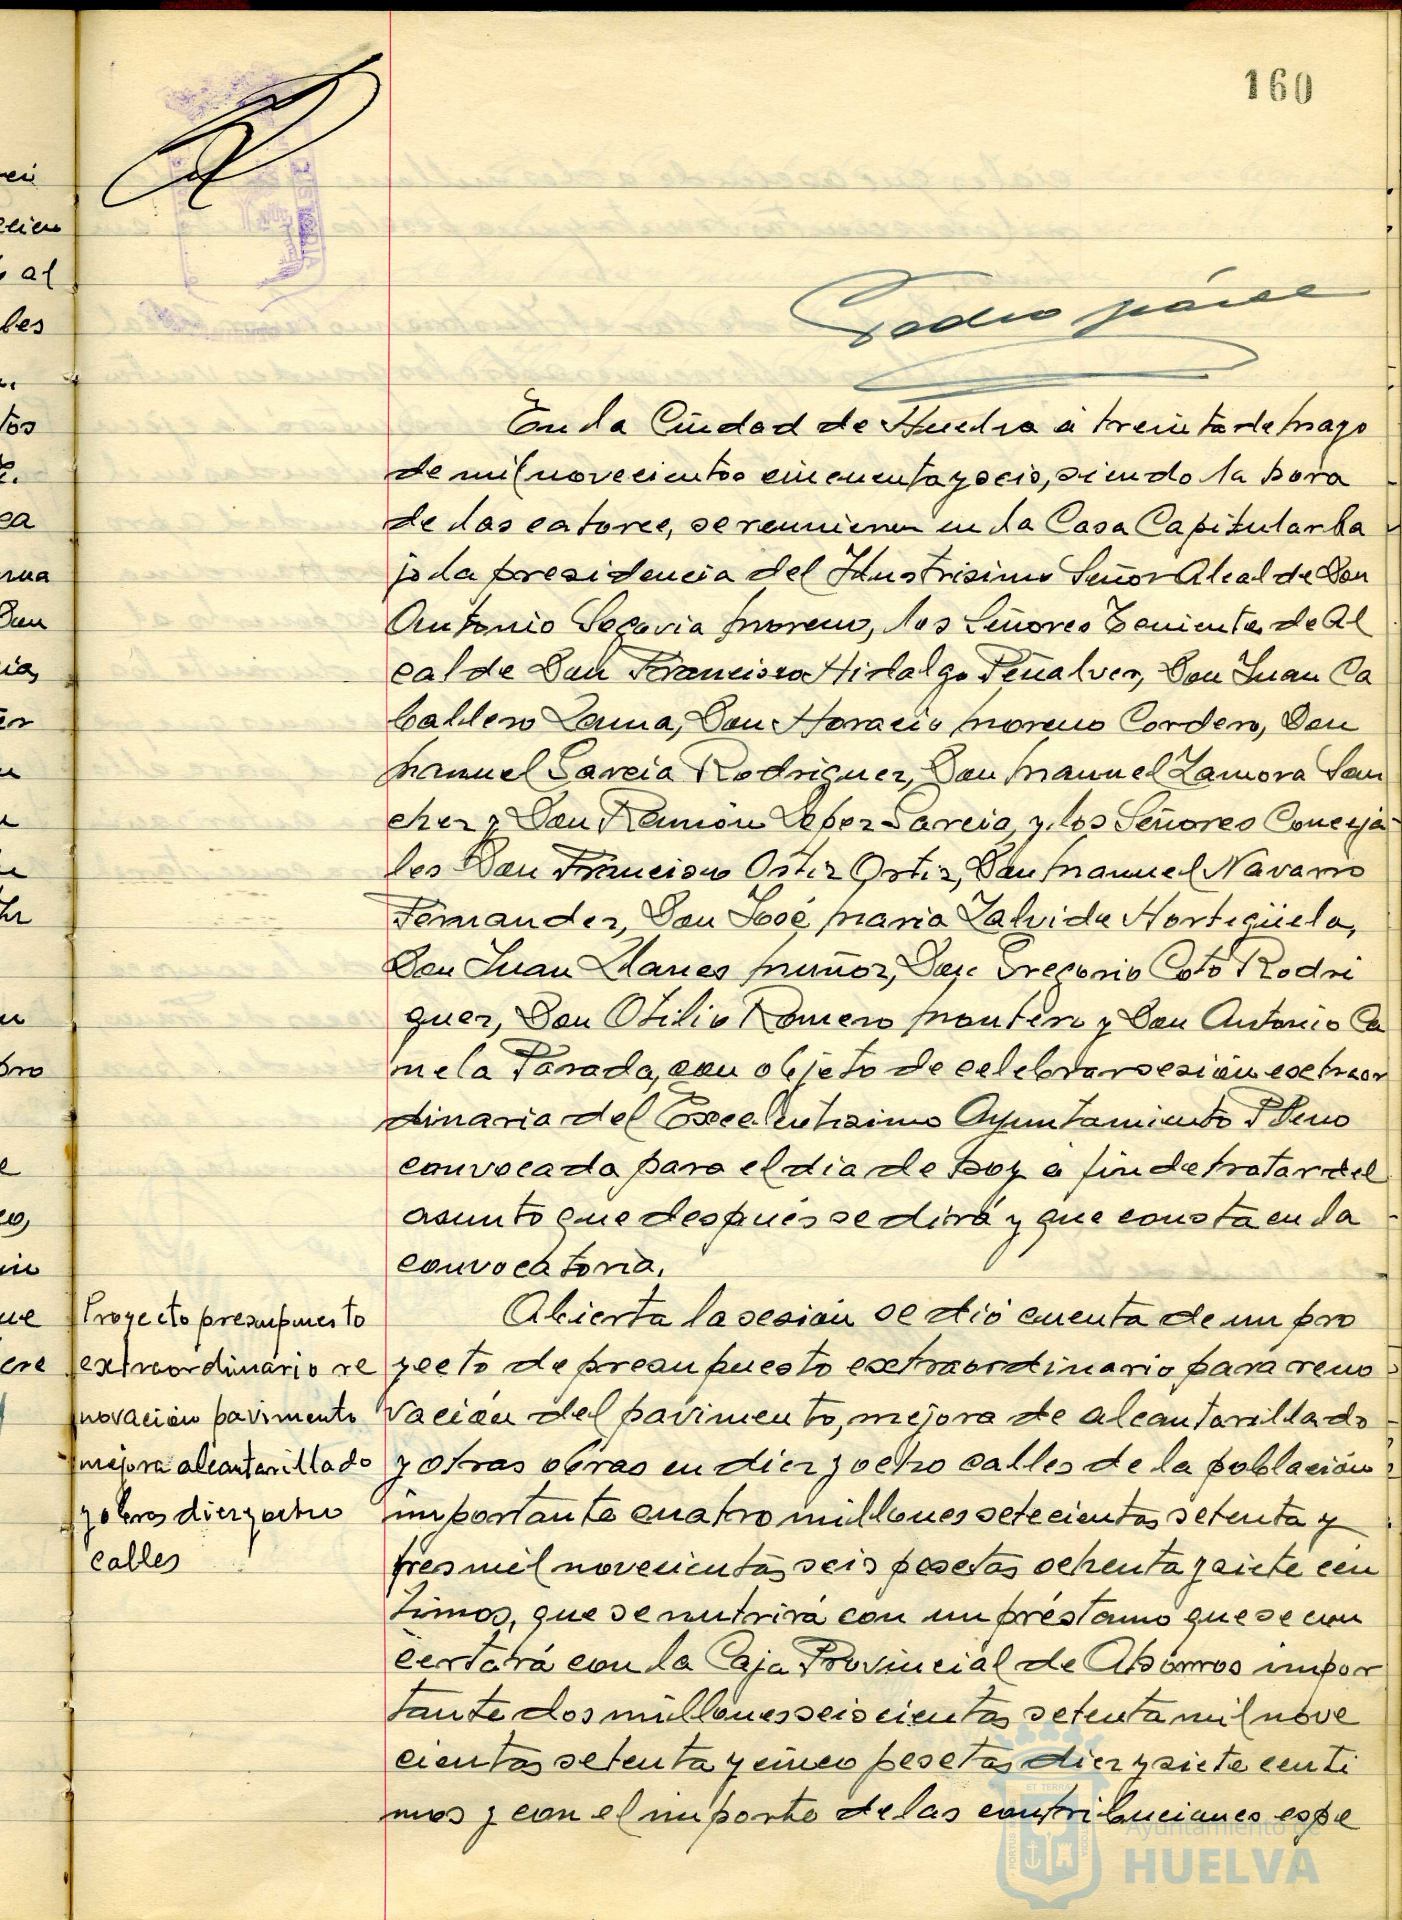 160
En la Ciudad de Huelva a treinta de mayo
de mil novecientos cincuenta y seis, siendo la hora
de las catorce, se reunieron en la Casa Capitular ba
jo la presidencia del Ilustrisimo Señor Alcalde Don
Antonio Segovia Moreno, los Señores Tenientes de Al
calde Don Francisco Hidalgo Peñalver, Don Juan Ca
ballero Lama, Don Horacio Moreno Cordero, Don
Manuel Garcia Rodriguez, Don Manuel Zamora San
chez y Don Ramón Lopez Garcia, y los Señores Conceja
les Don Francisco Ortiz Ortiz, Don Manuel Navarro
Fernandez, Don José Maria Zalvide Hortigüela,
Don Juan Llanes Muñoz, Don Gregorio Coto Rodri
guez, Don Otilio Romero Montero y Don Antonio Ca
mela Parada, con objeto de celebrar sesión extraor
dinaria del Excelentisimo Ayuntamiento Pleno
convocada para el dia de hoy a fin de tratar del
asunto que después se dirá y que consta en la
convocatoria.
Proyecto presupuesto
extraordinario re
novación pavimento
mejora alcantarillado
y obras diez y ocho
calles
Abierta la sesión se dió cuenta de un pro
yecto de presupuesto extraordinario para reno
vación del pavimento, mejora de alcantarillado
y otras obras en diez y ocho calles de la población
importante cuatro millones setecientas setenta y
tres mil novecientas seis pesetas ochenta y siete cén
timos, que se nutrirá con un préstamo que se con
certará con la Caja Provincial de Ahorros impor
tante dos millones seiscientas setenta mil nove
cientas setenta y cinco pesetas diez y siete centi
mos y con el importe de las contribuciones espe
Ayuntamiento de
HUELVA